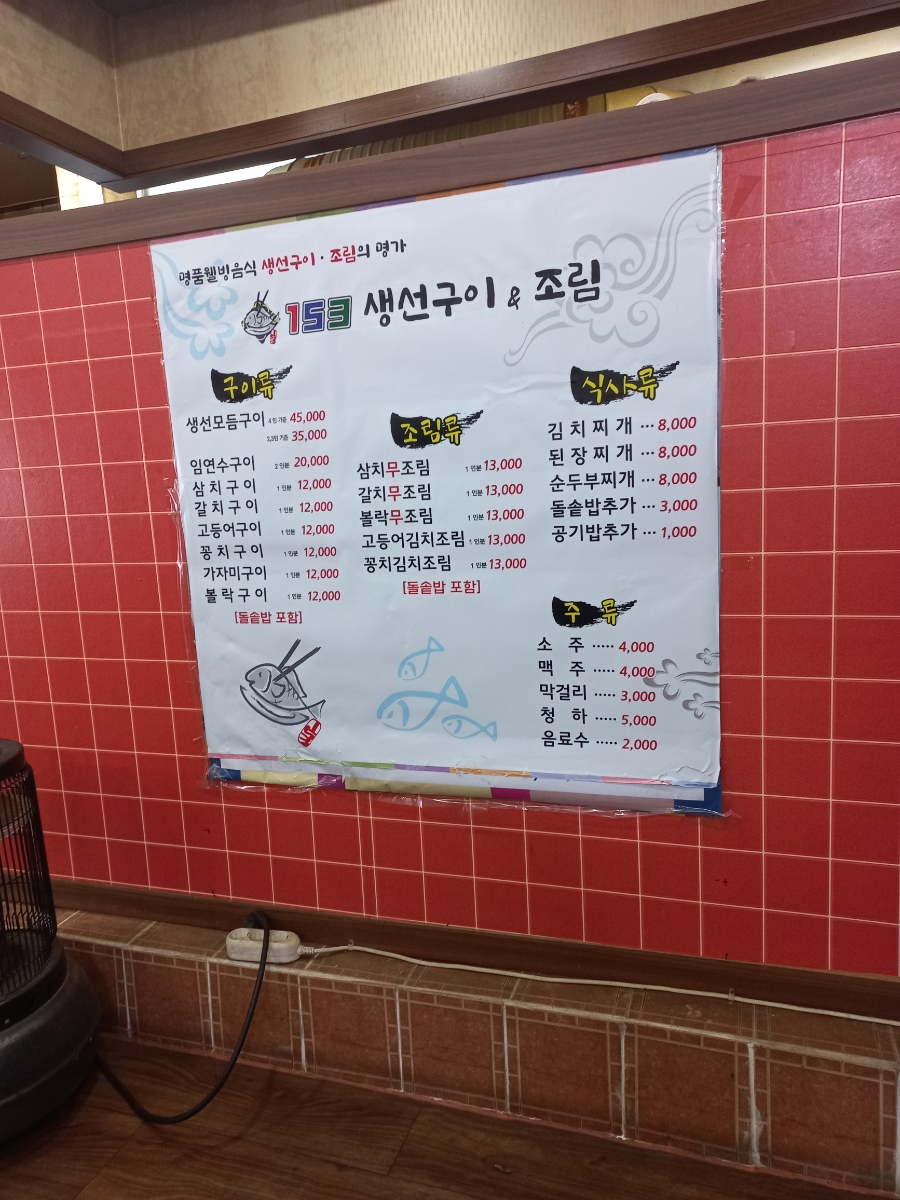 명품웰빙음식 생선구이 · 조림의 명가
153 생선구이 & 조림
구이류
생선모듬구이 4인 기준 45,000
2,3인 기준 35,000
임연수구이 2인분 20,000
삼치구이 1인분 12,000
갈치구이 1인분 12,000
고등어구이 1인분 12,000
꽁치구이 1인분 12,000
가자미구이 1인분 12,000
볼락구이 1인분 12,000
[돌솥밥 포함]
조림류
삼치무조림 1인분 13,000
갈치무조림 1인분 13,000
볼락무조림 1인분 13,000
고등어김치조림 1인분 13,000
꽁치김치조림 1인분 13,000
[돌솥밥 포함]
식사류
김치찌개 ··· 8,000
된장찌개 ··· 8,000
순두부찌개 ··· 8,000
돌솥밥추가 ··· 3,000
공기밥추가 ··· 1,000
주류
소주 ····· 4,000
맥주 ····· 4,000
막걸리 ····· 3,000
청하 ····· 5,000
음료수 ····· 2,000